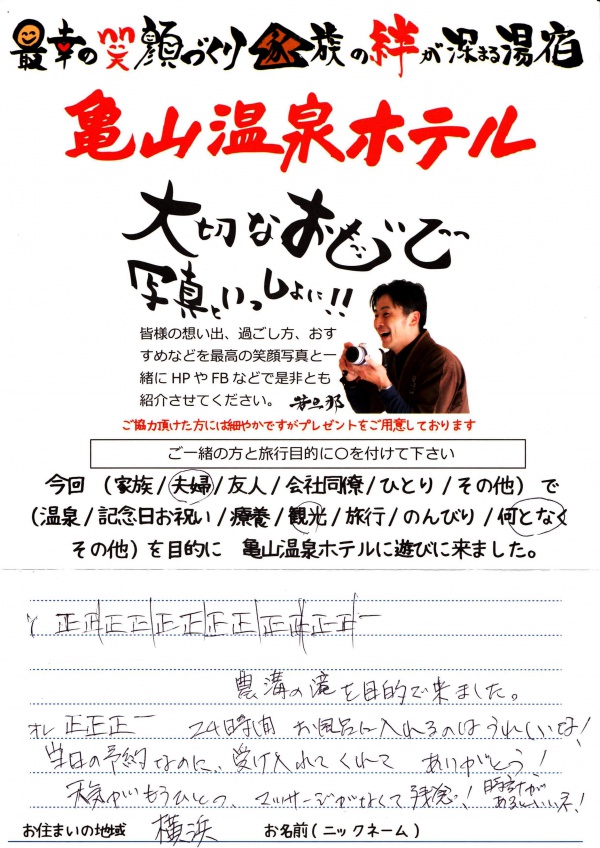 最幸の笑顔づくり家族の絆が深まる湯宿
亀山温泉ホテル
大切なおもいで
写真といっしょに!!
皆様の想い出、過ごし方、おす
すめなどを最高の笑顔写真と一
緒に HP や FB などで是非とも
紹介させてください。 若旦那
ご協力頂けた方には細やかですがプレゼントをご用意しております
ご一緒の方と旅行目的に〇を付けて下さい
今回 (家族/夫婦/友人/会社同僚/ひとり/その他) で
(温泉/記念日お祝い/療養/観光/旅行/のんびり/何となく
その他) を目的に 亀山温泉ホテルに遊びに来ました。
正正正正正正正正正正正一
農溝の滝を目的で来ました。
オレ 正正正一 24時間 お風呂に入れるのはうれしいな!
当日の予約なのに、受け入れてくれて ありがとう!
天気がもうひとつ、マッサージがなくて残念! 時計が
あるといいネ!
お住まいの地域 横浜 お名前(ニックネーム)